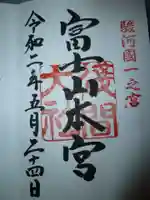 駿河國一之宮
富士山本宮
浅間大社
令和二年五月二十四日